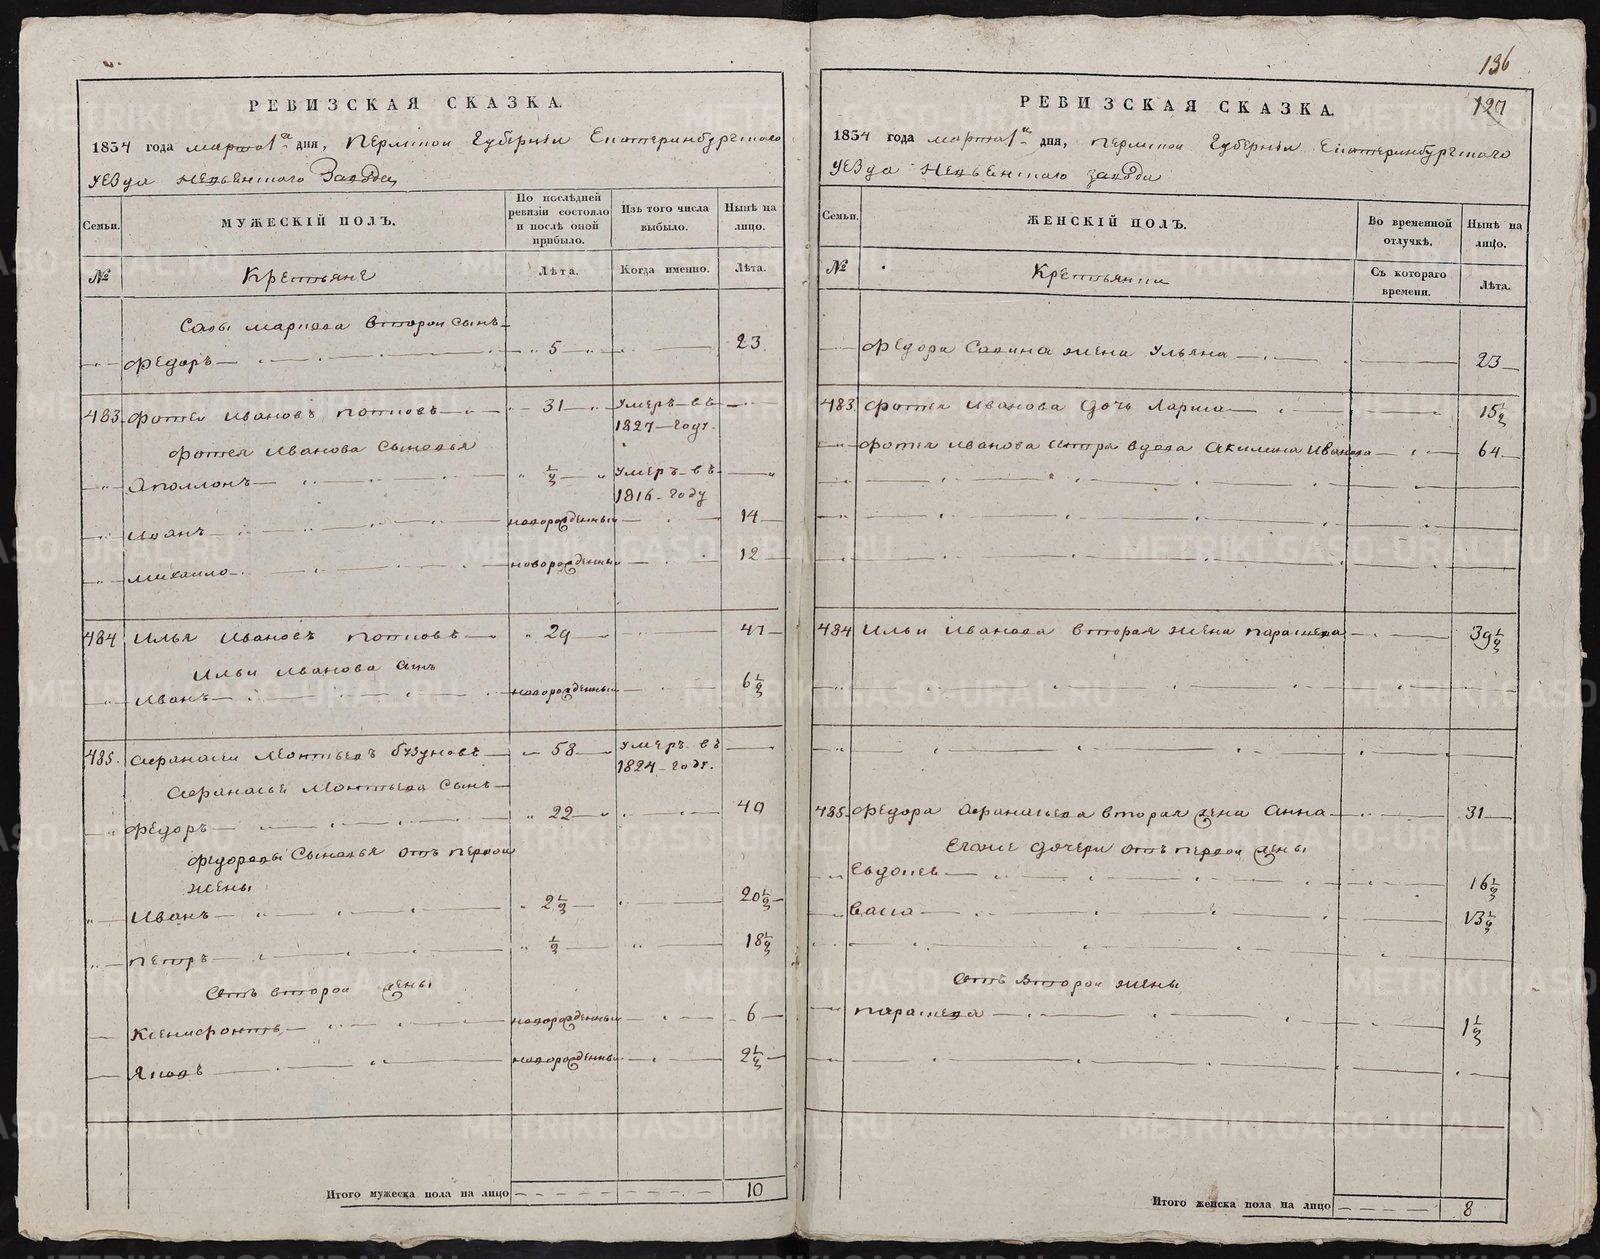 РЕВИЗСКАЯ СКАЗКА.
1834 года марта 1го дня, Пермской Губернiи Екатеринбургскаго
уезда Невьянскаго Завода
Семьи.
МУЖЕСКIЙ ПОЛЪ.
По послѣдней ревизiи состояло и послѣ оной прибыло.
Изъ того числа выбыло.
Нынѣ на лицо.
№
Крестьяне
Лѣта.
Когда именно.
Лѣта.
Савы Маркова второй сынъ
Федоръ 5 23
483 Фотей Ивановъ 31 умеръ въ
1827 году.
Фотея Иванова сыновья
Аполлонъ ½ умеръ въ
1816 году
Иванъ новорожденный 14
Михайло новорожденный 12
484 Илья Ивановъ 29 47
Ильи Иванова сынъ
Иванъ новорожденный 6½
485. Афанасей Бузуновъ 58 умеръ въ
1824 году.
Афанасья сынъ
Федоръ 22 40
Федоровы сыновья отъ первой
жены
Иванъ 2½ 20½
Петръ ½ 18½
Отъ второй жены
Ксенофонтъ новорожденный 6
Яковъ новорожденный 2½
Итого мужеска пола на лицо 10
136
127
РЕВИЗСКАЯ СКАЗКА.
1834 года марта 1го дня, Пермской Губернiи Екатеринбургскаго
уезда Невьянскаго завода
Семьи.
ЖЕНСКIЙ ПОЛЪ.
Во временной отлучкѣ.
Нынѣ на лицо.
№
Крестьянки
Съ котораго времени.
Лѣта.
Федора Савина жена Ульяна 23
483 Фотея Иванова дочь 15½
Фотея Иванова сестра вдова Акилина Иванова 64
484 Ильи Иванова вторая жена Парасковья 39½
485. Федора Афанасьева вторая жена Анна 31
Егоже дочери отъ первой жены
Евдокея 16½
Васса 13½
Отъ второй жены
Парасковья 1½
Итого женска пола на лицо 8